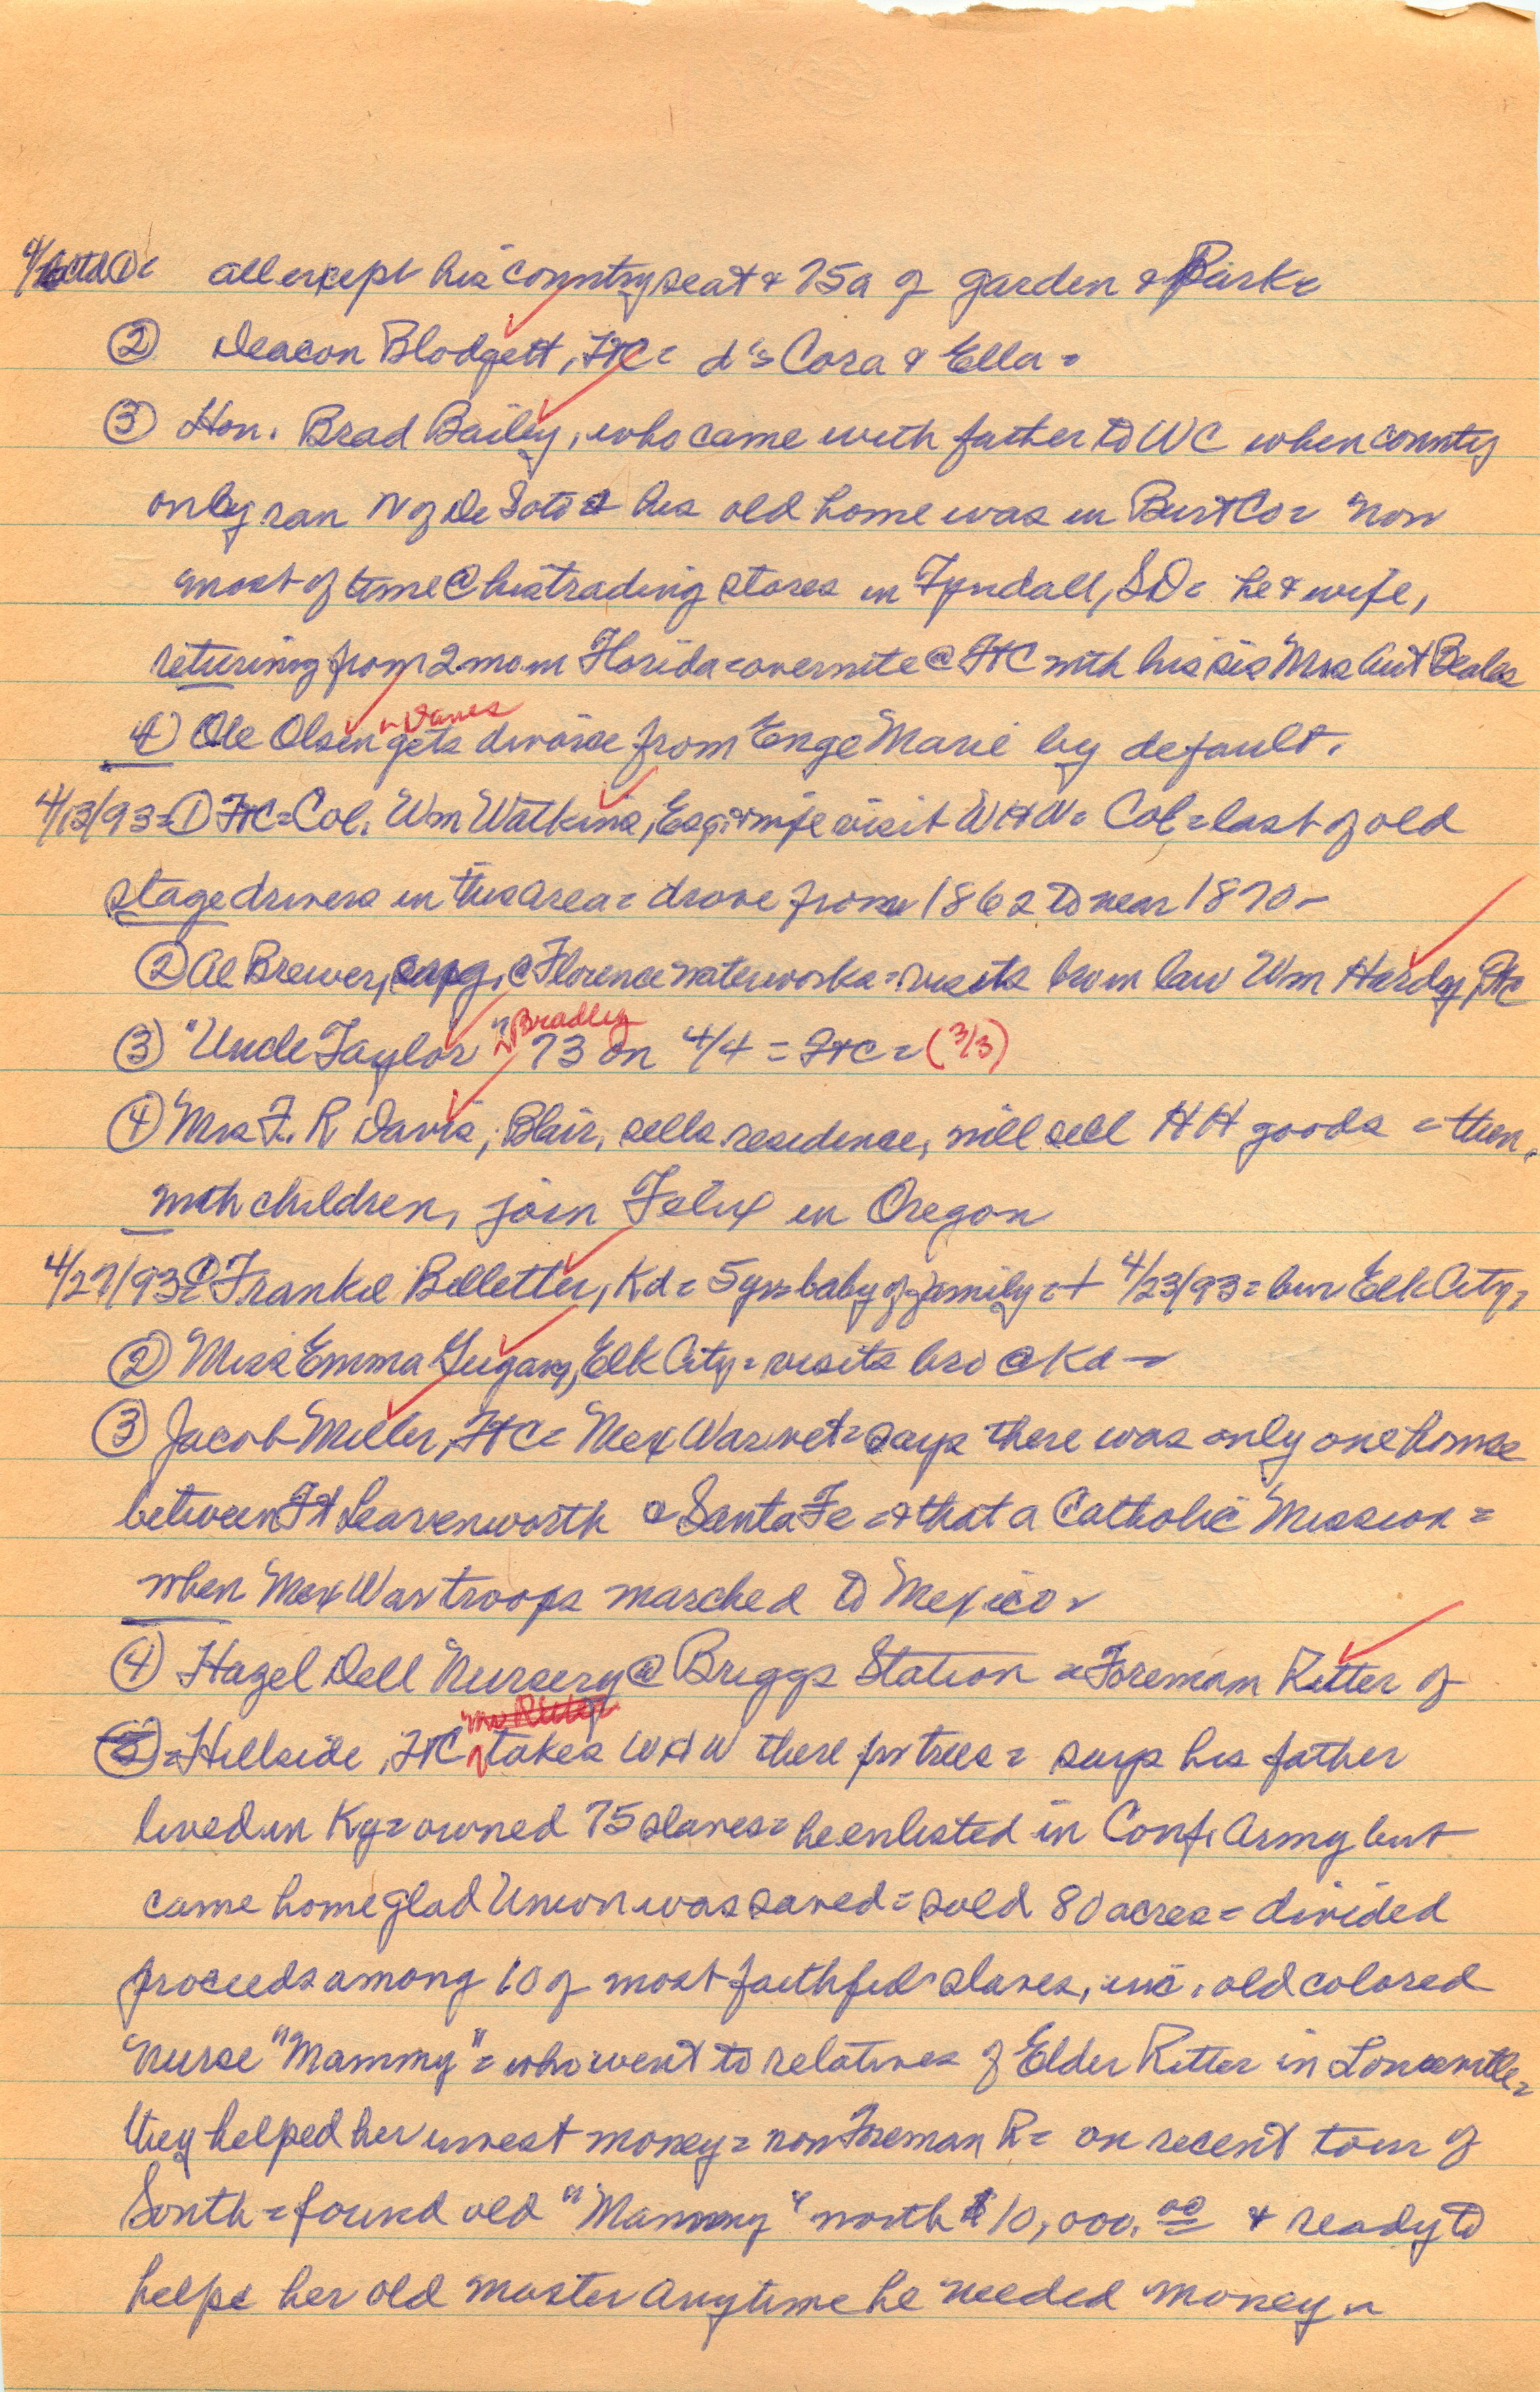 all except his country seat & 75a of garden & Park=
② Deacon Blodgett, FtC= d's Cora & Ella =
③ Hon. Brad Bailey, who came with father to WC when county
only ran N of De Soto & his old home was in Burt Co = now
most of time @ his trading stores in Tyndall, SD = he & wife,
returing from 2 mo in Florida = overnite @ FtC with his sis Mrs Aut Beales
④ Ole Olsen gets divorce from Enge Marie by default.
4/13/93=① FtC=Col. Wm Watkins, Esq. & wife visit WHW= Col=last of old
stagedrivers in this area= drove from 1862 to near 1870-
② Al Brewer, eng. @ Florence waterworks=visits bro in law Wm Hardy, FtC
③ "Uncle Taylor" Bradley 73 on 4/4 = FtC = (3/3)
④ Mrs F. R Davis, Blair, sells residence, will sell HH goods = then,
with children, join Felix in Oregon
4/27/93=① Frankie Belletter, Kd= 5 yrs baby of family=+ 4/23/93= bur Elk City=
② Miss Emma, Elk City= visits bro @ Kd =
③ Jacob Miller, FtC= Mex War vet= says there was only one house
between Ft Leavenworth & Santa Fe =& that a Catholic Mission =
when Mex War troops marched to Mexico =
④ Hazel Dell Nursery @ Briggs Station = Foreman Ritter of
Hillside, FtC takes WHW there for trees = says his father
lived in Ky= owned 75 slaves= he enlisted in Conf. Army but
came home glad Union was saved= sold 80 acres= divided
proceeds among 10 of most faithful slaves, inc. old colored
nurse "Mammy"= who went to relatives of Elder Ritter in Louisville=
they helped her invest money= now Foreman R= on recent tour of
South= found old "Mammy" worth $10,000.00 & ready to
help her old master anytime he needed money =